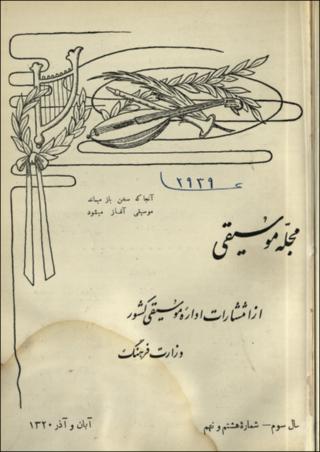 آنجا که سخن باز میماند
موسیقی آغاز میشود
۲۹۳۹
مجله موسیقی
از انتشارات اداره موسیقی کشور
وزارت فرهنگ
سال سوم — شمارهٔ هشتم و نهم
آبان و آذر ۱۳۲۰